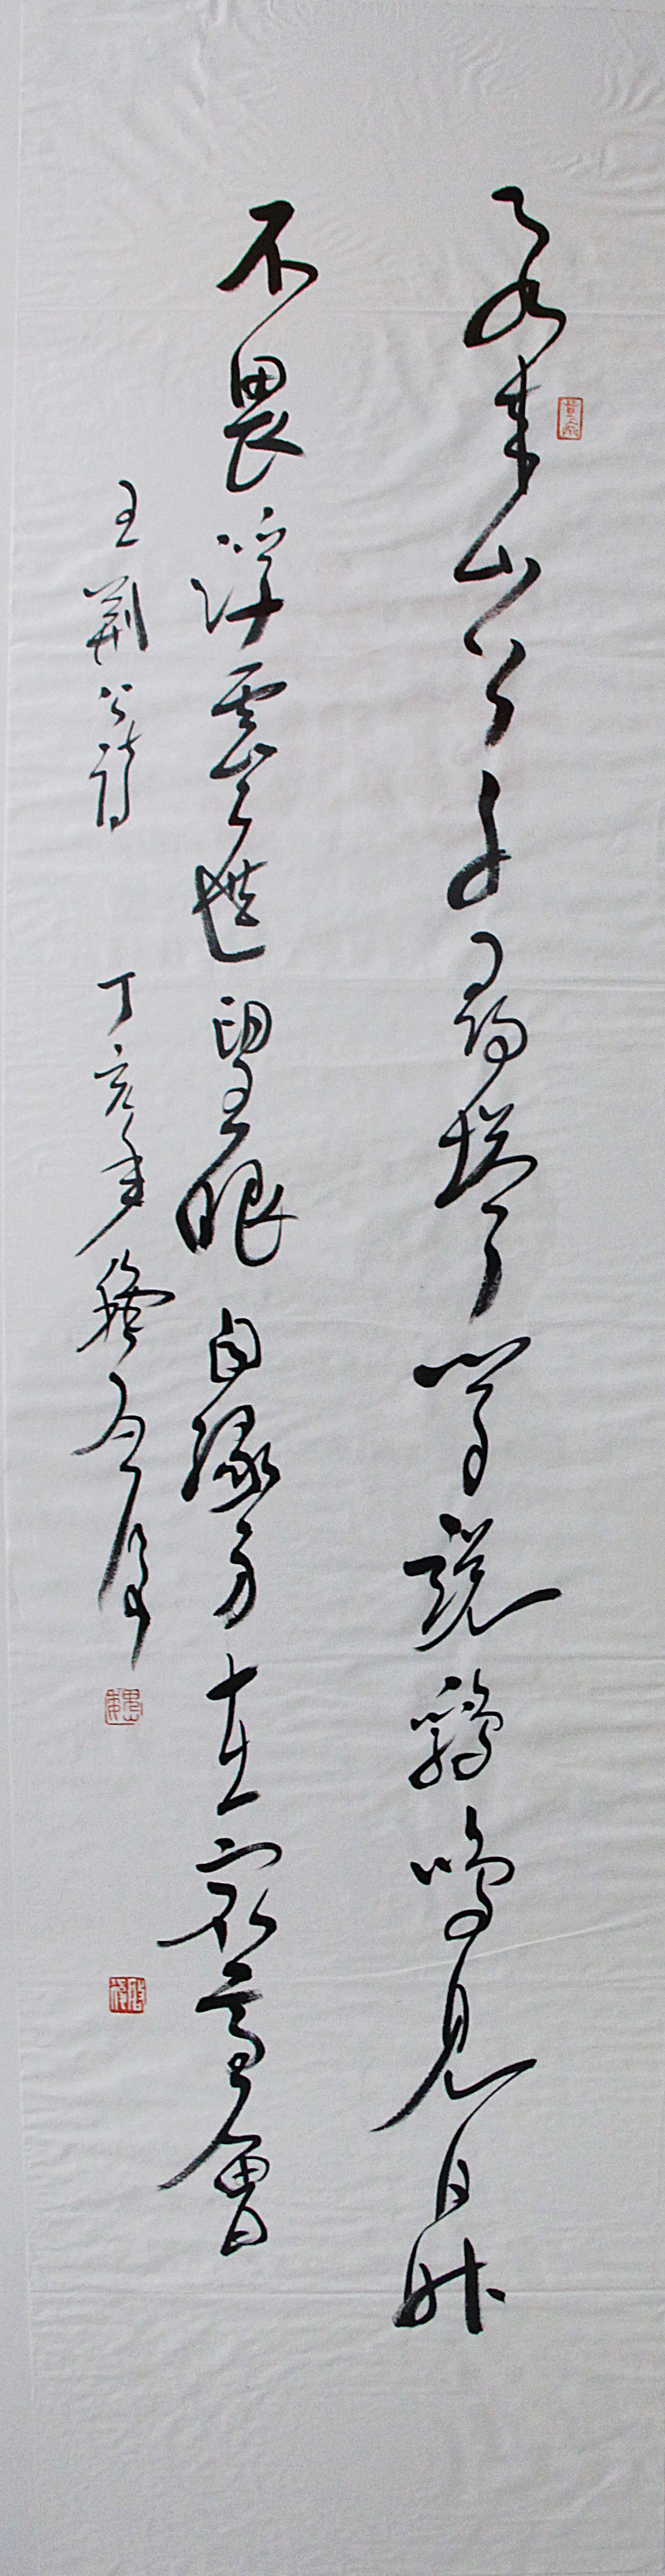 飛來山千尋塔聞說雞鳴見日昇
不畏浮雲遮望眼自緣身在最高層
王荊公詩 丁亥年